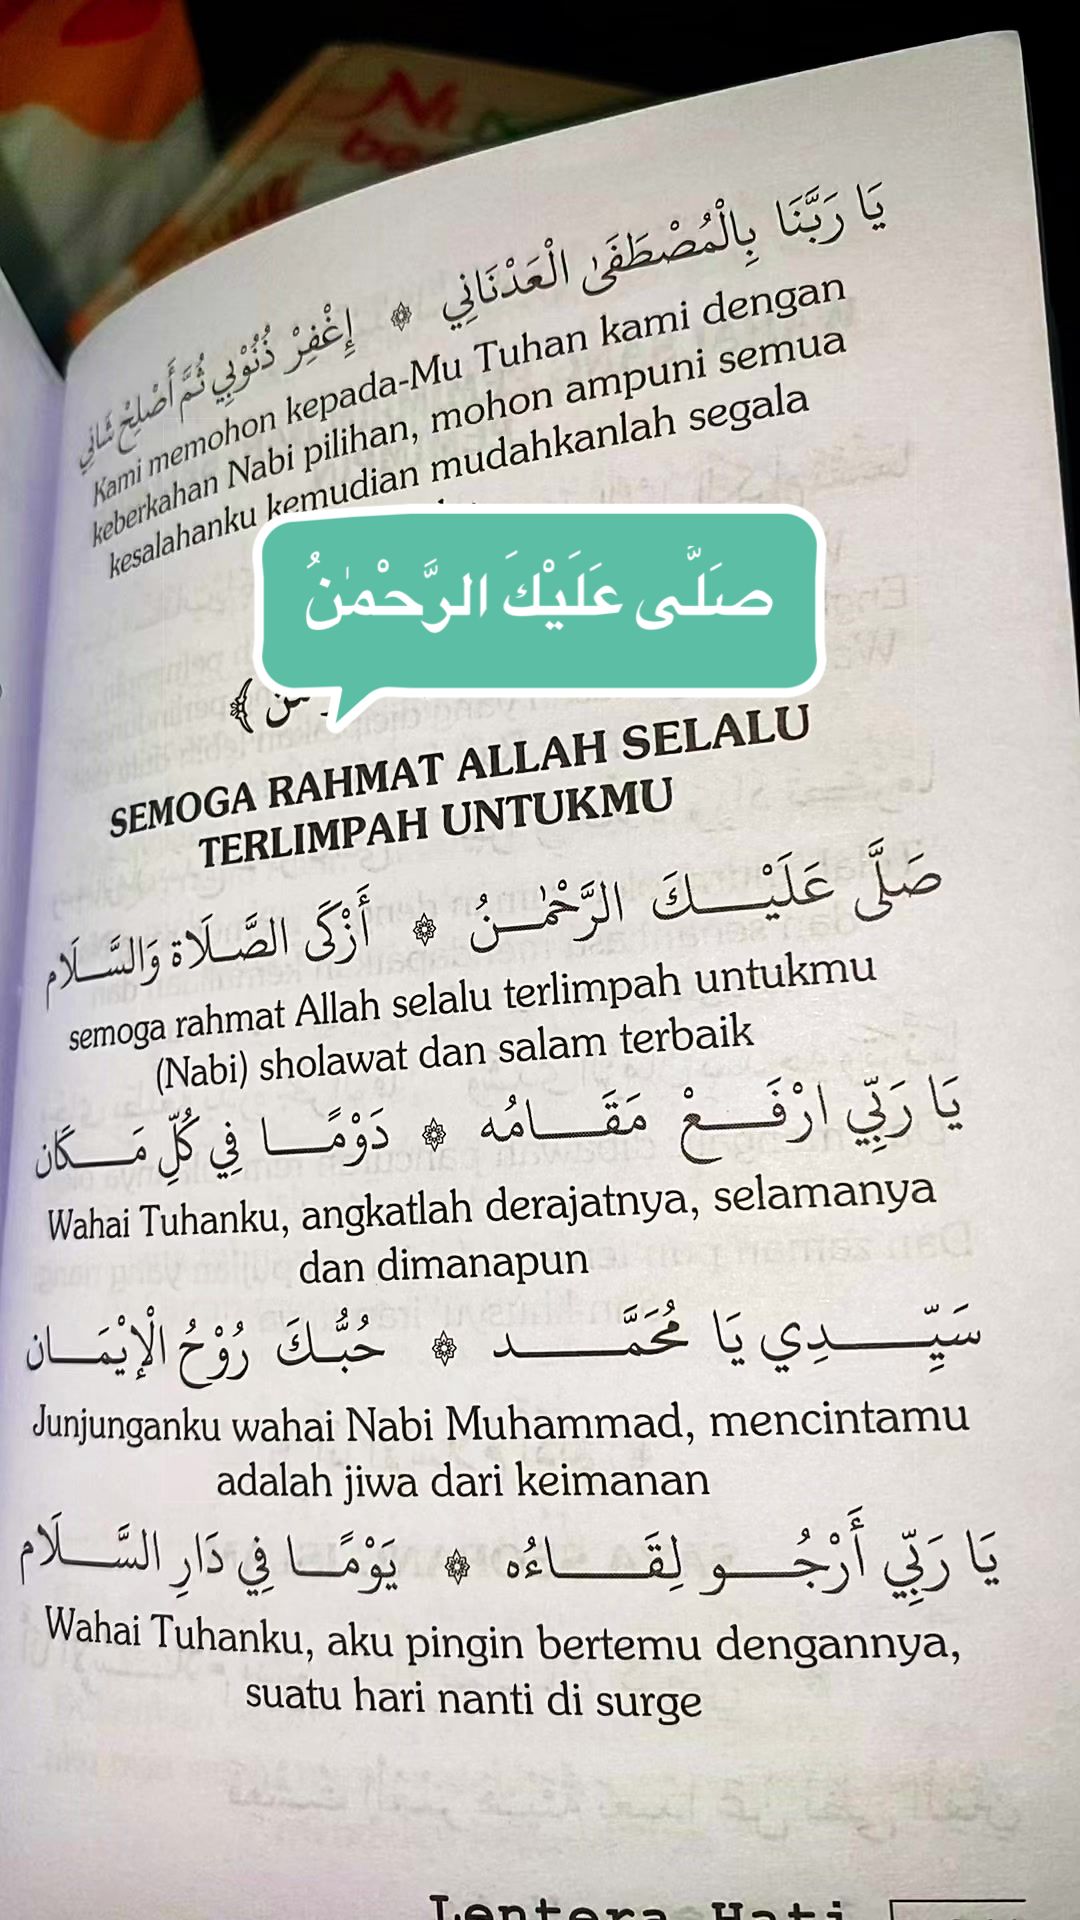 يَا رَبَّنَا بِالْمُصْطَفَىٰ الْعَدْنَانِي ۞ إِغْفِرْ ذُنُوْبِي ثُمَّ أَصْلِحْ شَانِي
Kami memohon kepada-Mu Tuhan kami dengan
keberkahan Nabi pilihan, mohon ampuni semua
kesalahanku kemudian mudahkanlah segala
صَلَّى عَلَيْكَ الرَّحْمٰنُ
SEMOGA RAHMAT ALLAH SELALU
TERLIMPAH UNTUKMU
صَلَّى عَلَيْـــكَ الرَّحْمٰـنُ ۞ أَزْكَى الصَّـلَاة وَالسَّـلَام
semoga rahmat Allah selalu terlimpah untukmu
(Nabi) sholawat dan salam terbaik
يَا رَبِّي ارْفَـــعْ مَقَـــامُه ۞ دَوْمًـــا فِي كُلِّ مَـــكَان
Wahai Tuhanku, angkatlah derajatnya, selamanya
dan dimanapun
سَيِّـــدِي يَا مُحَمَّـــد ۞ حُبُّـكَ رُوْحُ الْإِيْمَـــان
Junjunganku wahai Nabi Muhammad, mencintamu
adalah jiwa dari keimanan
يَا رَبِّي أَرْجُـــو لِقَـــاءُه ۞ يَوْمًـــا فِي دَارِ السَّـــلَام
Wahai Tuhanku, aku pingin bertemu dengannya,
suatu hari nanti di surge
Lentera Hati